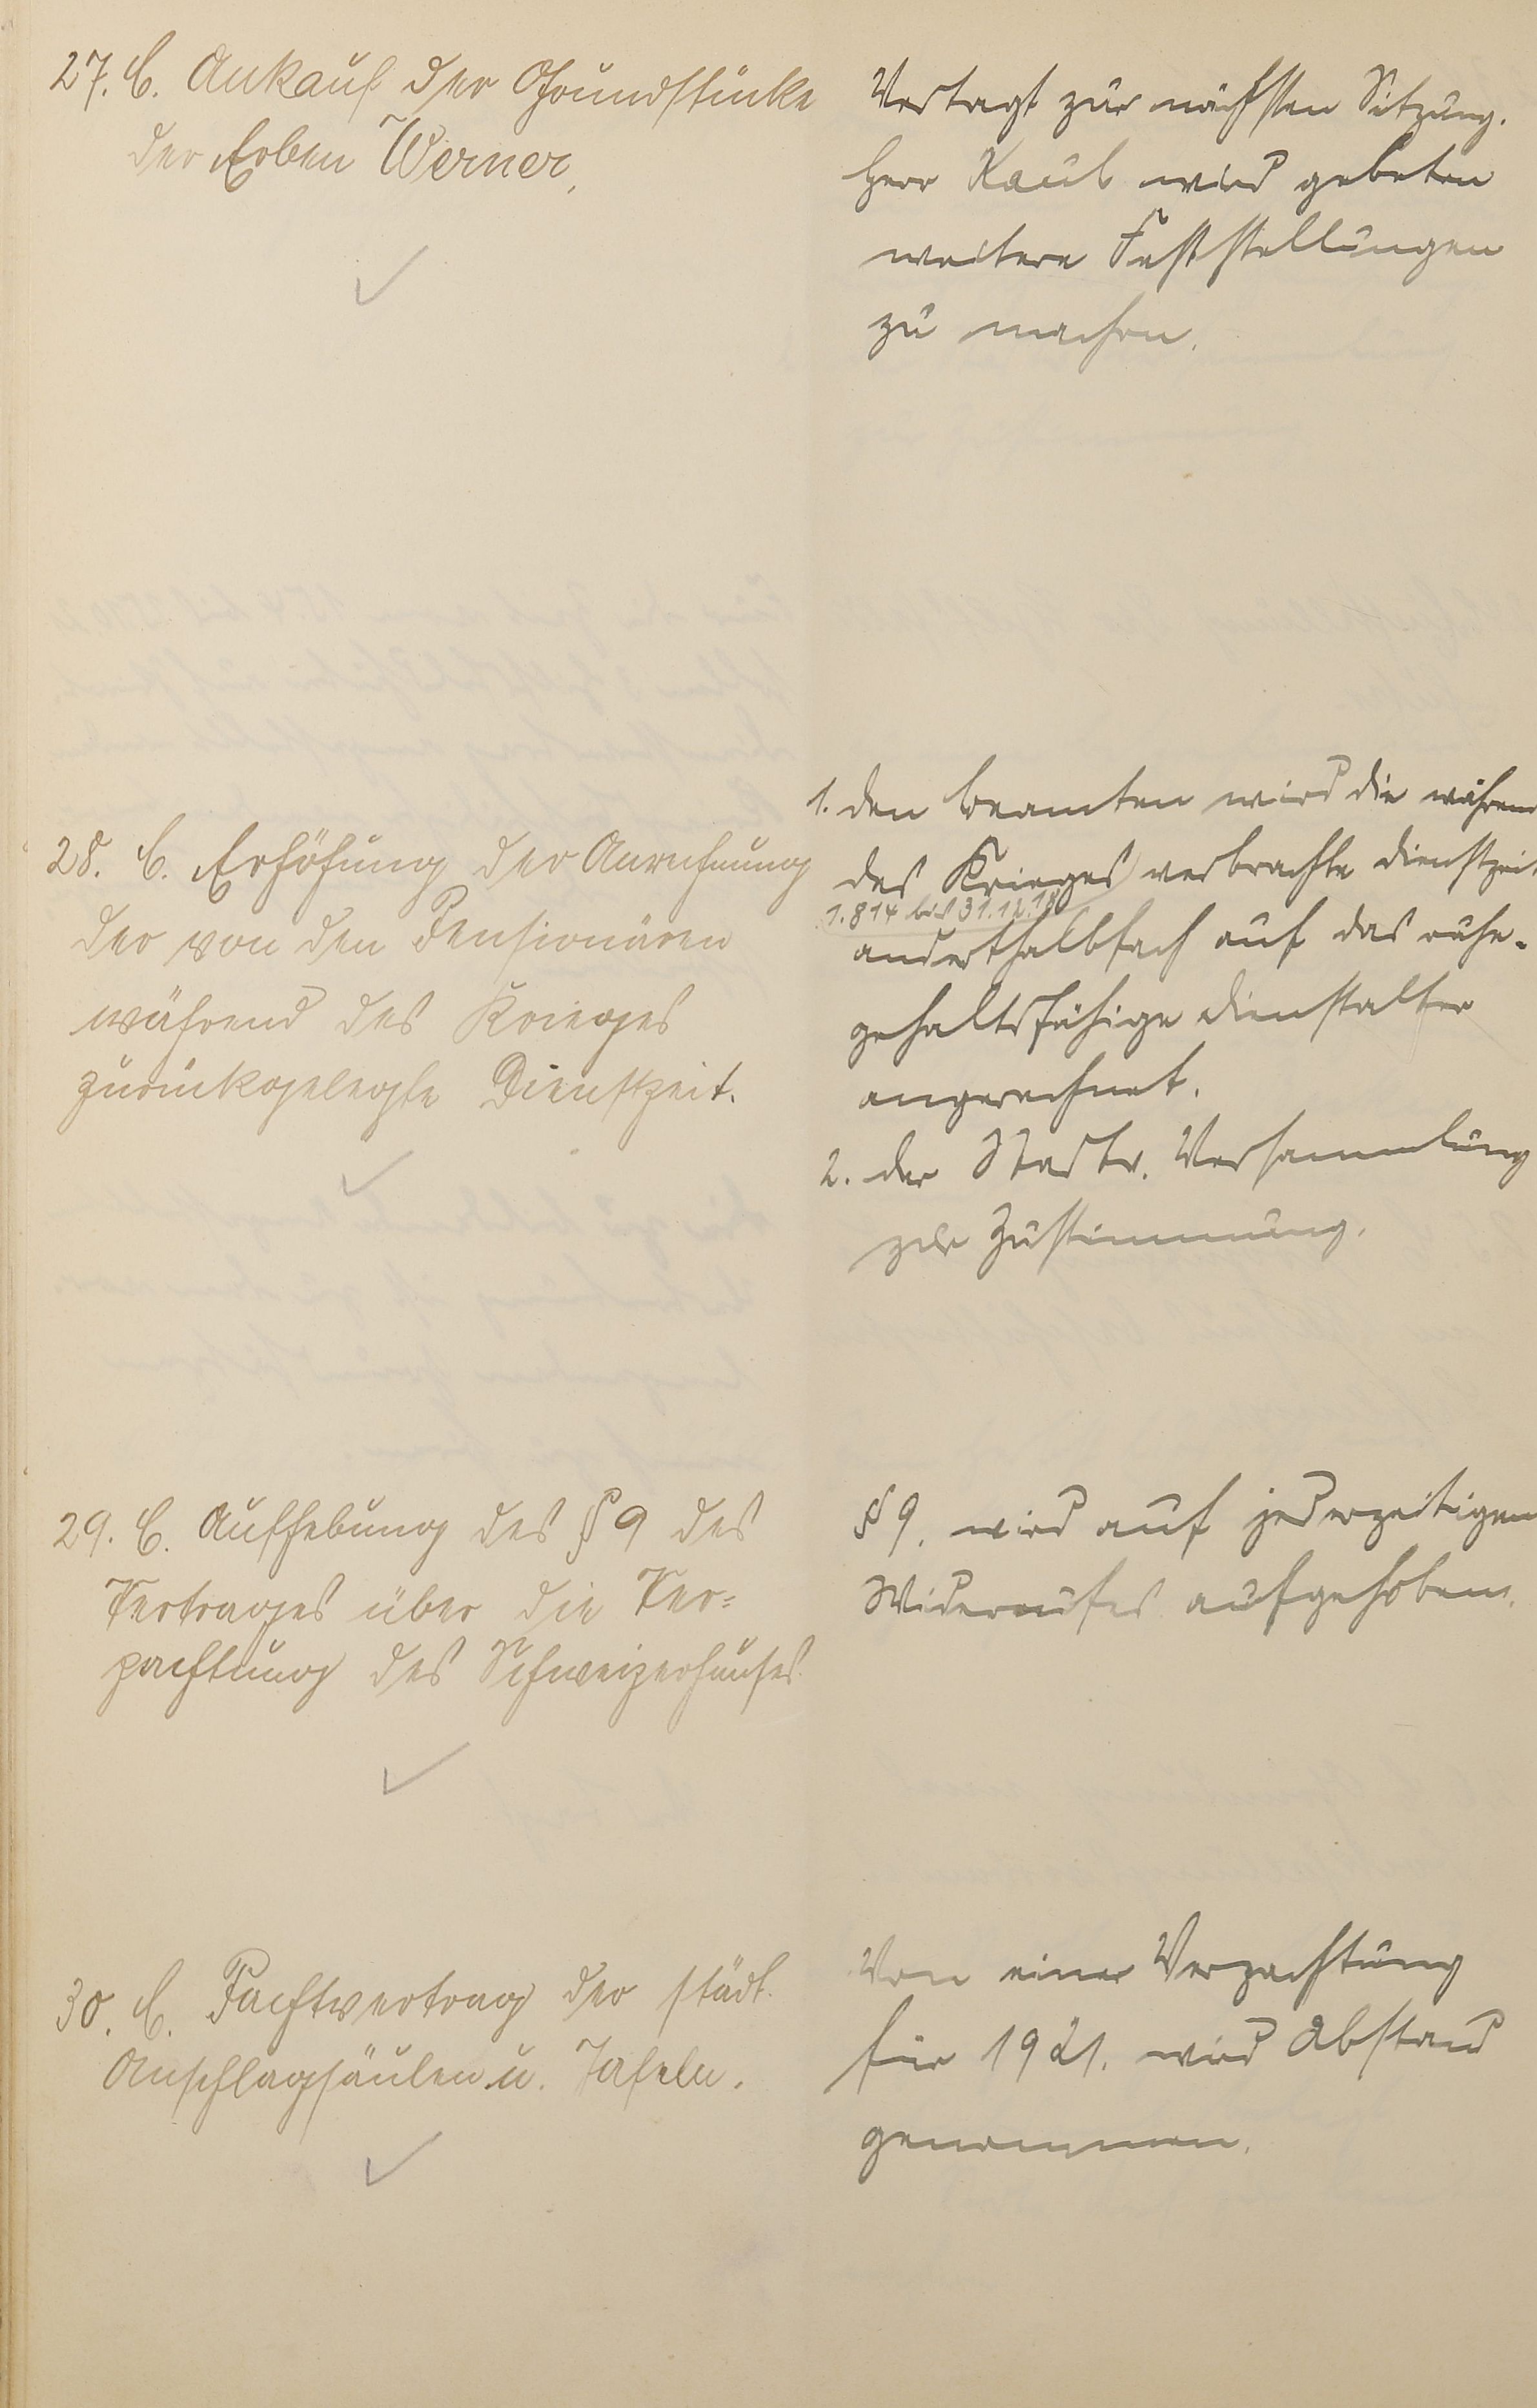 27. C. Ankauf der Grundstücke
der Erben Werner.
Vertagt zur nächsten Sitzung.
Herr Kaul wird gebeten
weitere Feststellungen
zu machen.
28. C. Erhöhung der Anrechnung
der von den Pensionären
während des Krieges
zurückgelegte Dienstzeit.
1. den Beamten wird die während
des Krieges verbrachte Dienstzeit
1.8 14 bis 31.12.18
anderthalbfach auf das ruhe-
gehaltsfähige Dienstalter
angerechnet.
2. der Stadtv. Versammlung
zur Zustimmung.
29. C. Aufhebung des § 9 des
Vertrages über die Ver=
pachtung des Schweizerhauses.
§ 9. wird auf jederzeitigen
Widerrufes aufgehoben.
30. C. Pachtvertrag der städt.
Anschlagsäulen u. Tafeln.
Von einer Verpachtung
für 1921. wird Abstand
genommen.